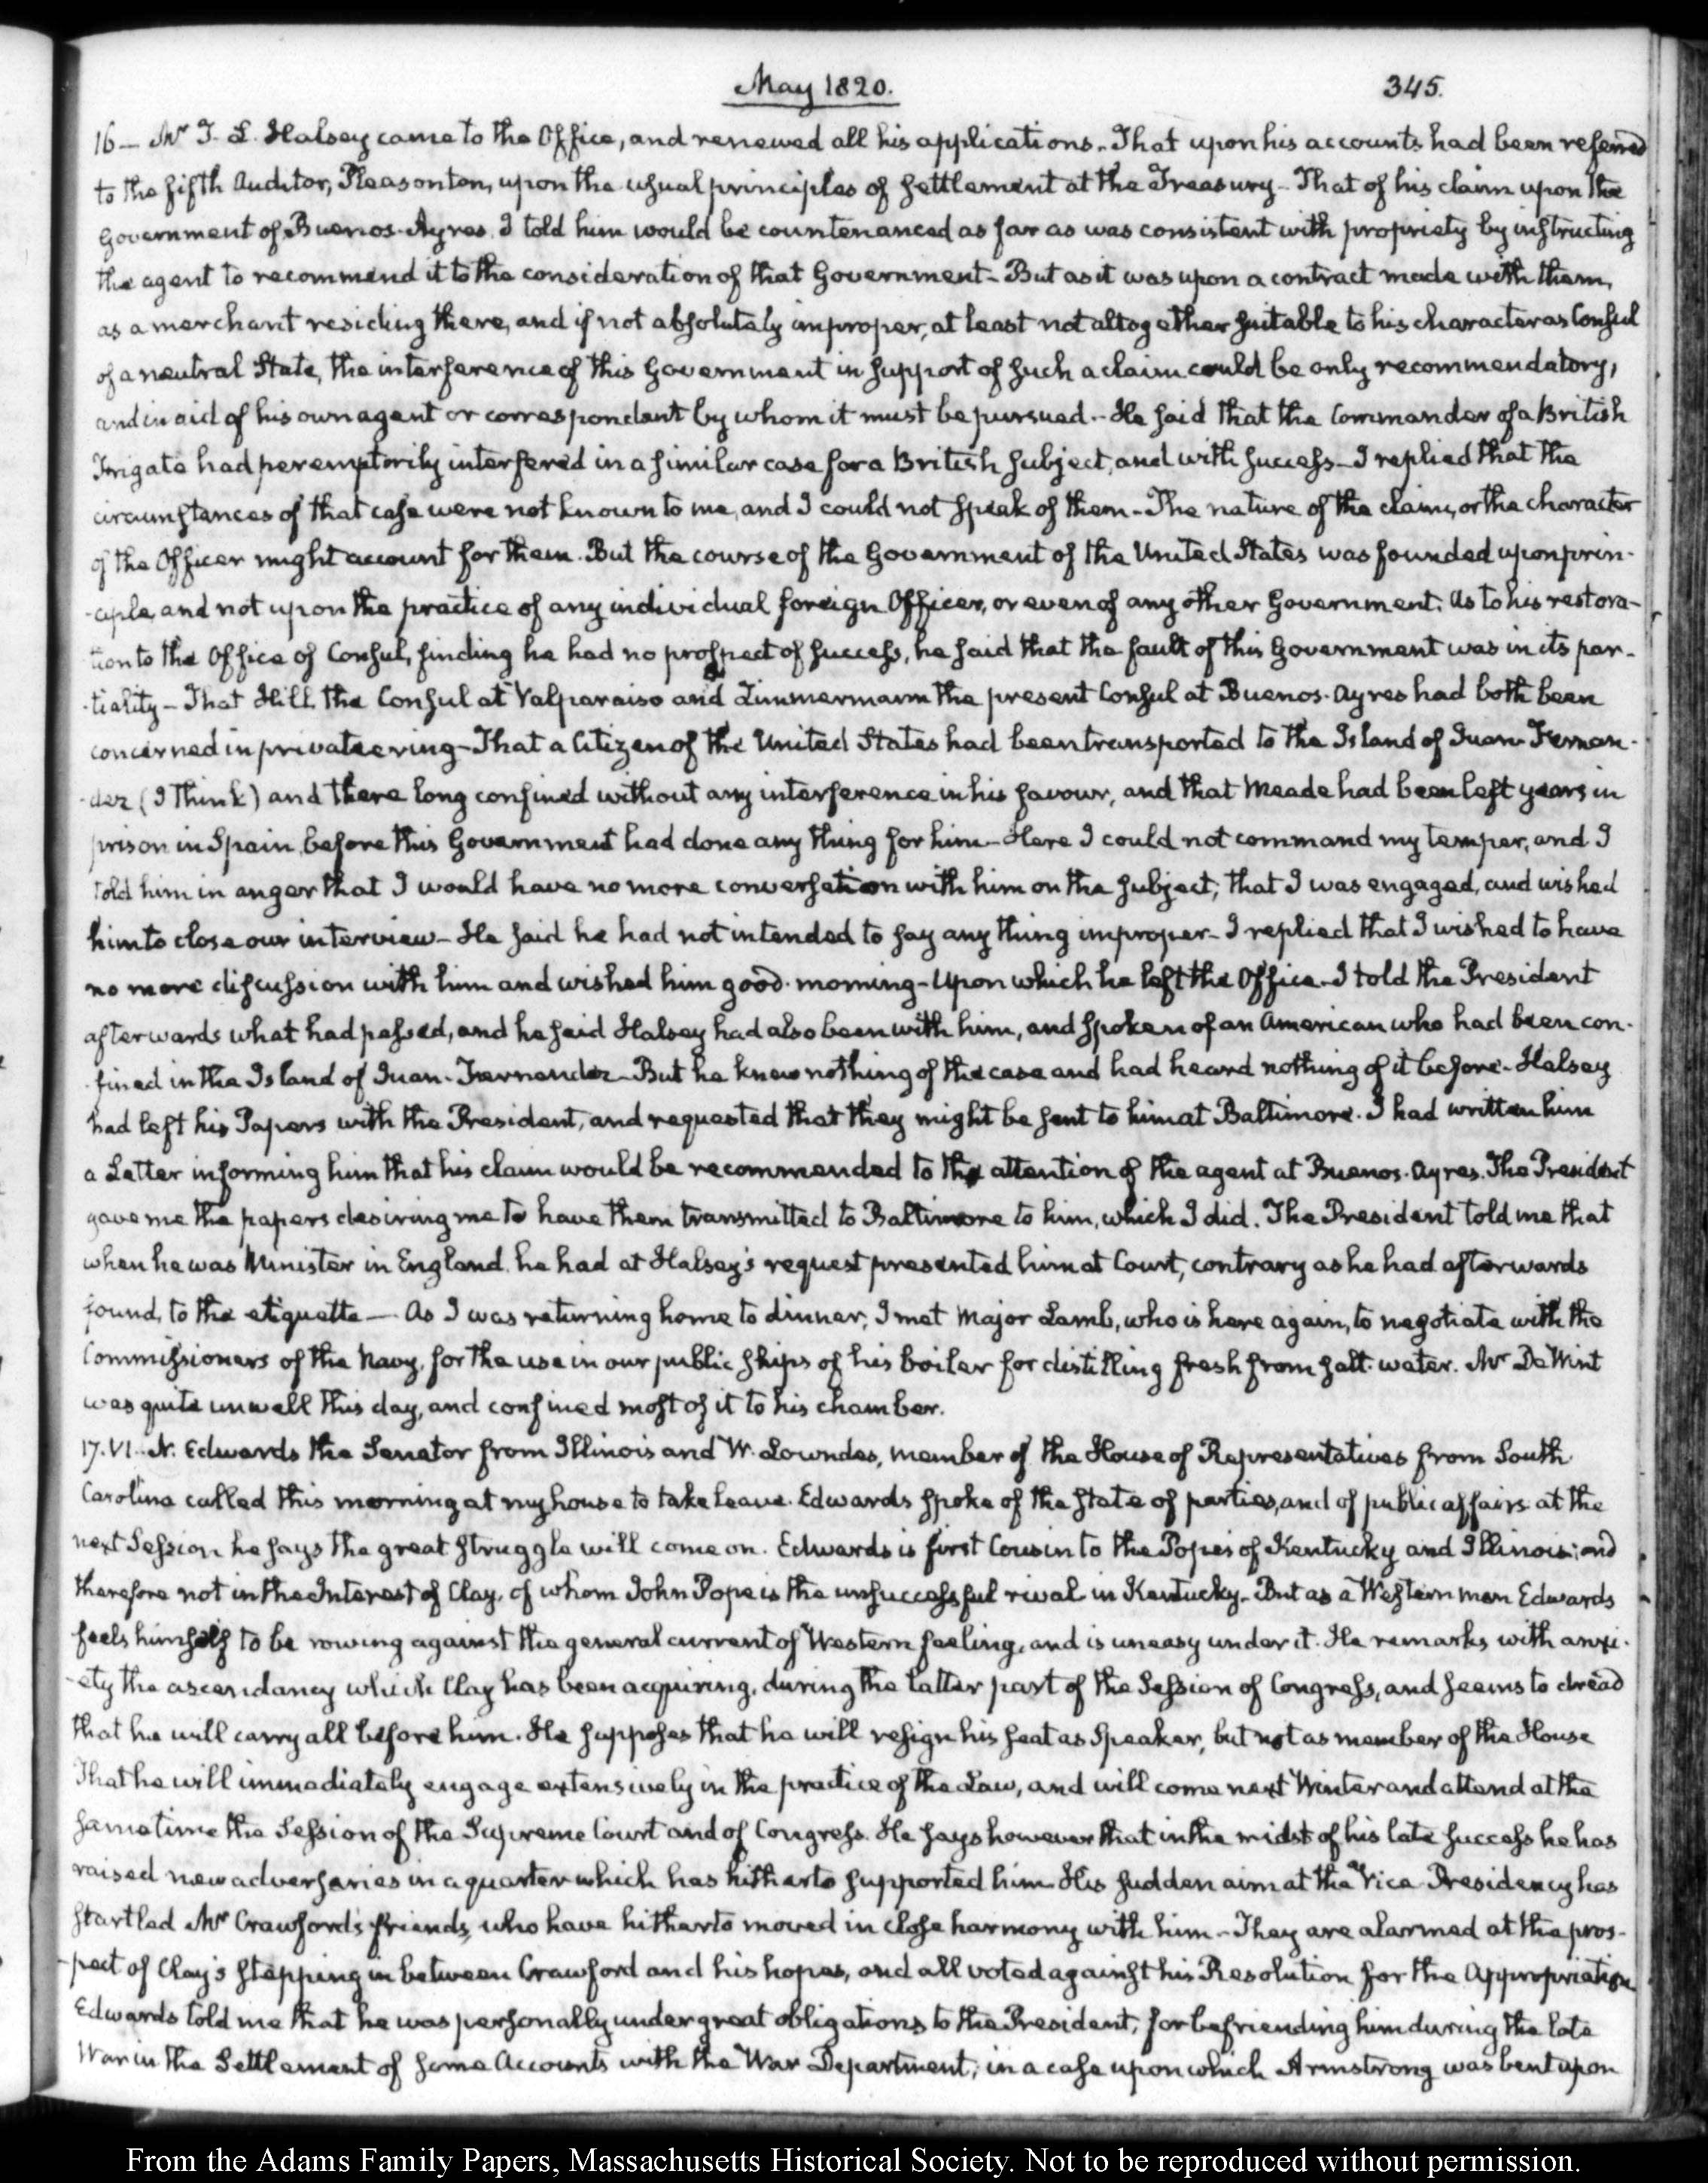 May 1820.
345.
16— Mr T. L. Halsey came to the Office, and renewed all his applications. That upon his accounts had been referred
to the fifth Auditor, Pleasonton, upon the usual principles of settlement at the Treasury— That of his claim upon the
Government of Buenos-Ayres I told him would be countenanced as far as was consistent with propriety by instructing
the agent to recommend it to the consideration of that Government— But as it was upon a contract made with them,
as a merchant residing there, and if not absolutely improper, at least not altogether suitable to his character as Consul
of a neutral State, the interference of this Government in support of such a claim could be only recommendatory,
and in aid of his own agent or correspondent by whom it must be pursued.— He said that the Commander of a British
Frigate had peremptorily interfered in a similar case for a British subject, and with success— I replied that the
circumstances of that case were not known to me, and I could not speak of them— The nature of the claim, or the character
of the Officer might account for them. But the course of the Government of the United States was founded upon prin-
-ciple, and not upon the practice of any individual foreign Officer, or even of any other Government. As to his restora-
tion to the Office of Consul, finding he had no prospect of success, he said that the fault of this Government was in its par-
-tiality— That Hill the Consul at Valparaiso and Zimmermann the present Consul at Buenos-Ayres had both been
concerned in privateering— That a Citizen of the United States had been transported to the Island of Juan Fernan-
-dez (I think) and there long confined without any interference in his favour, and that Meade had been left years in
prison in Spain, before this Government had done any thing for him— Here I could not command my temper, and I
told him in anger that I would have no more conversation with him on the subject; that I was engaged, and wished
him to close our interview— He said he had not intended to say any thing improper— I replied that I wished to have
no more discussion with him and wished him good-morning— Upon which he left the Office— I told the President
afterwards what had passed, and he said Halsey had also been with him, and spoken of an American who had been con-
-fined in the Island of Juan-Fernandez— But he knew nothing of the case and had heard nothing of it before. Halsey
had left his Papers with the President, and requested that they might be sent to him at Baltimore. I had written him
a Letter informing him that his claim would be recommended to the attention of the agent at Buenos-Ayres. The President
gave me the papers desiring me to have them transmitted to Baltimore to him, which I did. The President told me that
when he was Minister in England, he had at Halsey's request presented him at Court, contrary as he had afterwards
found, to the etiquette— As I was returning home to dinner, I met Major Lamb, who is here again, to negotiate with the
Commissioners of the Navy, for the use in our public ships of his boiler for distilling fresh from salt-water. Mr De Wint
was quite unwell this day, and confined most of it to his chamber.
17. VI. N. Edwards the Senator from Illinois and W. Lowndes, member of the House of Representatives from South
Carolina called this morning at my house to take leave. Edwards spoke of the state of parties, and of public affairs at the
next Session he says the great struggle will come on. Edwards is first Cousin to the Popes of Kentucky and Illinois; and
therefore not in the Interest of Clay, of whom John Pope is the unsuccessful rival in Kentucky. But as a Western man Edwards
feels himself to be rowing against the general current of Western feeling, and is uneasy under it. He remarks with anxi-
-ety the ascendancy which Clay has been acquiring, during the latter part of the Session of Congress, and seems to dread
that he will carry all before him. He supposes that he will resign his seat as Speaker, but not as member of the House
That he will immediately engage extensively in the practice of the Law, and will come next Winter and attend at the
same time the Session of the Supreme Court and of Congress. He says however that in the midst of his late success he has
raised new adversaries in a quarter which has hitherto supported him. His sudden aim at the Vice Presidency has
startled Mr Crawford's friends, who have hitherto moved in close harmony with him— They are alarmed at the pros-
-pect of Clay's stepping in between Crawford and his hopes, and all voted against his Resolution for the Appropriation
Edwards told me that he was personally under great obligations to the President, for befriending him during the late
War in the Settlement of some Accounts with the War Department; in a case upon which Armstrong was bent upon
From the Adams Family Papers, Massachusetts Historical Society. Not to be reproduced without permission.